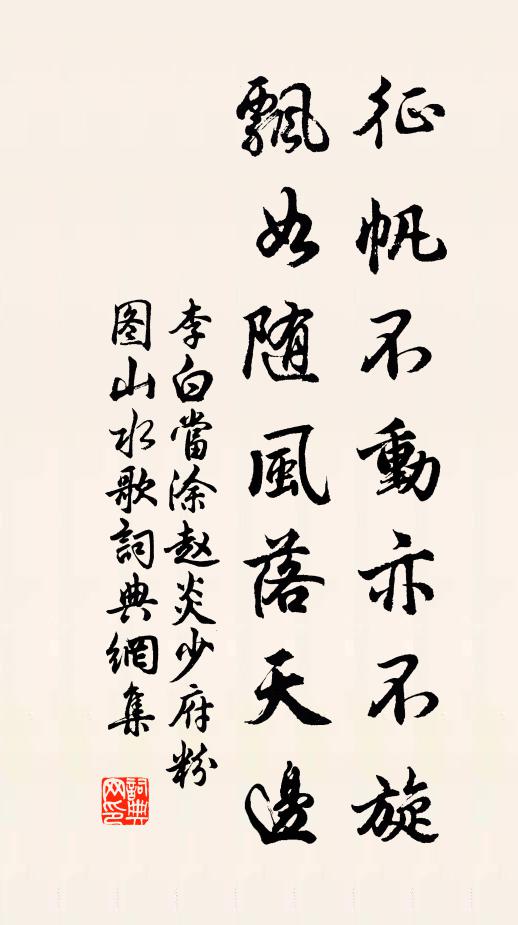 征帆不動亦不旋
飄如随風落天邊
李白當涂赵炎少府粉
图山水歌詞典網集
詞典网印